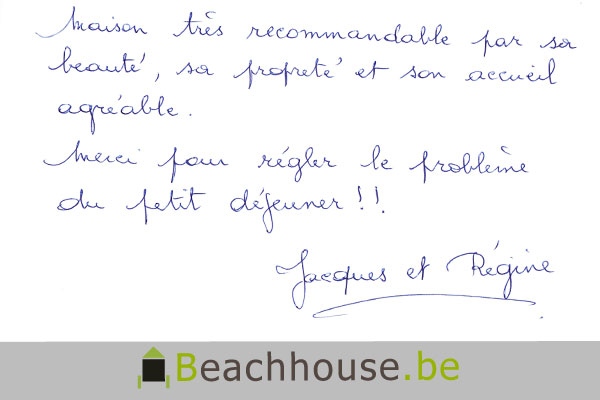 Maison très recommandable par sa
beauté, sa propreté et son accueil
agréable.
Merci pour régler le problème
du petit déjeuner !!
Jacques et Régine
Beachhouse.be